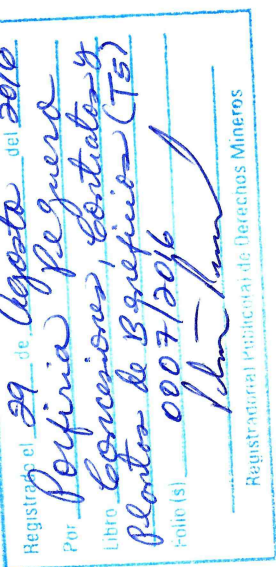 Registrado el 29 de Agosto del 2016
Por Porfiria Reguero
Libro Concesiones, Contratos y
Plantas de Beneficios (T5)
Folio (s) 0007/2016
Registrador(a) Público(a) de Derechos Mineros